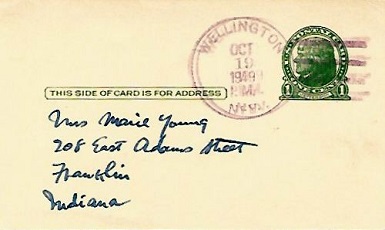 WELLINGTON
OCT
19
1949
P.M.
NEV.
1 1
THIS SIDE OF CARD IS FOR ADDRESS
Mrs Marie Young
208 East Adams Street
Franklin
Indiana